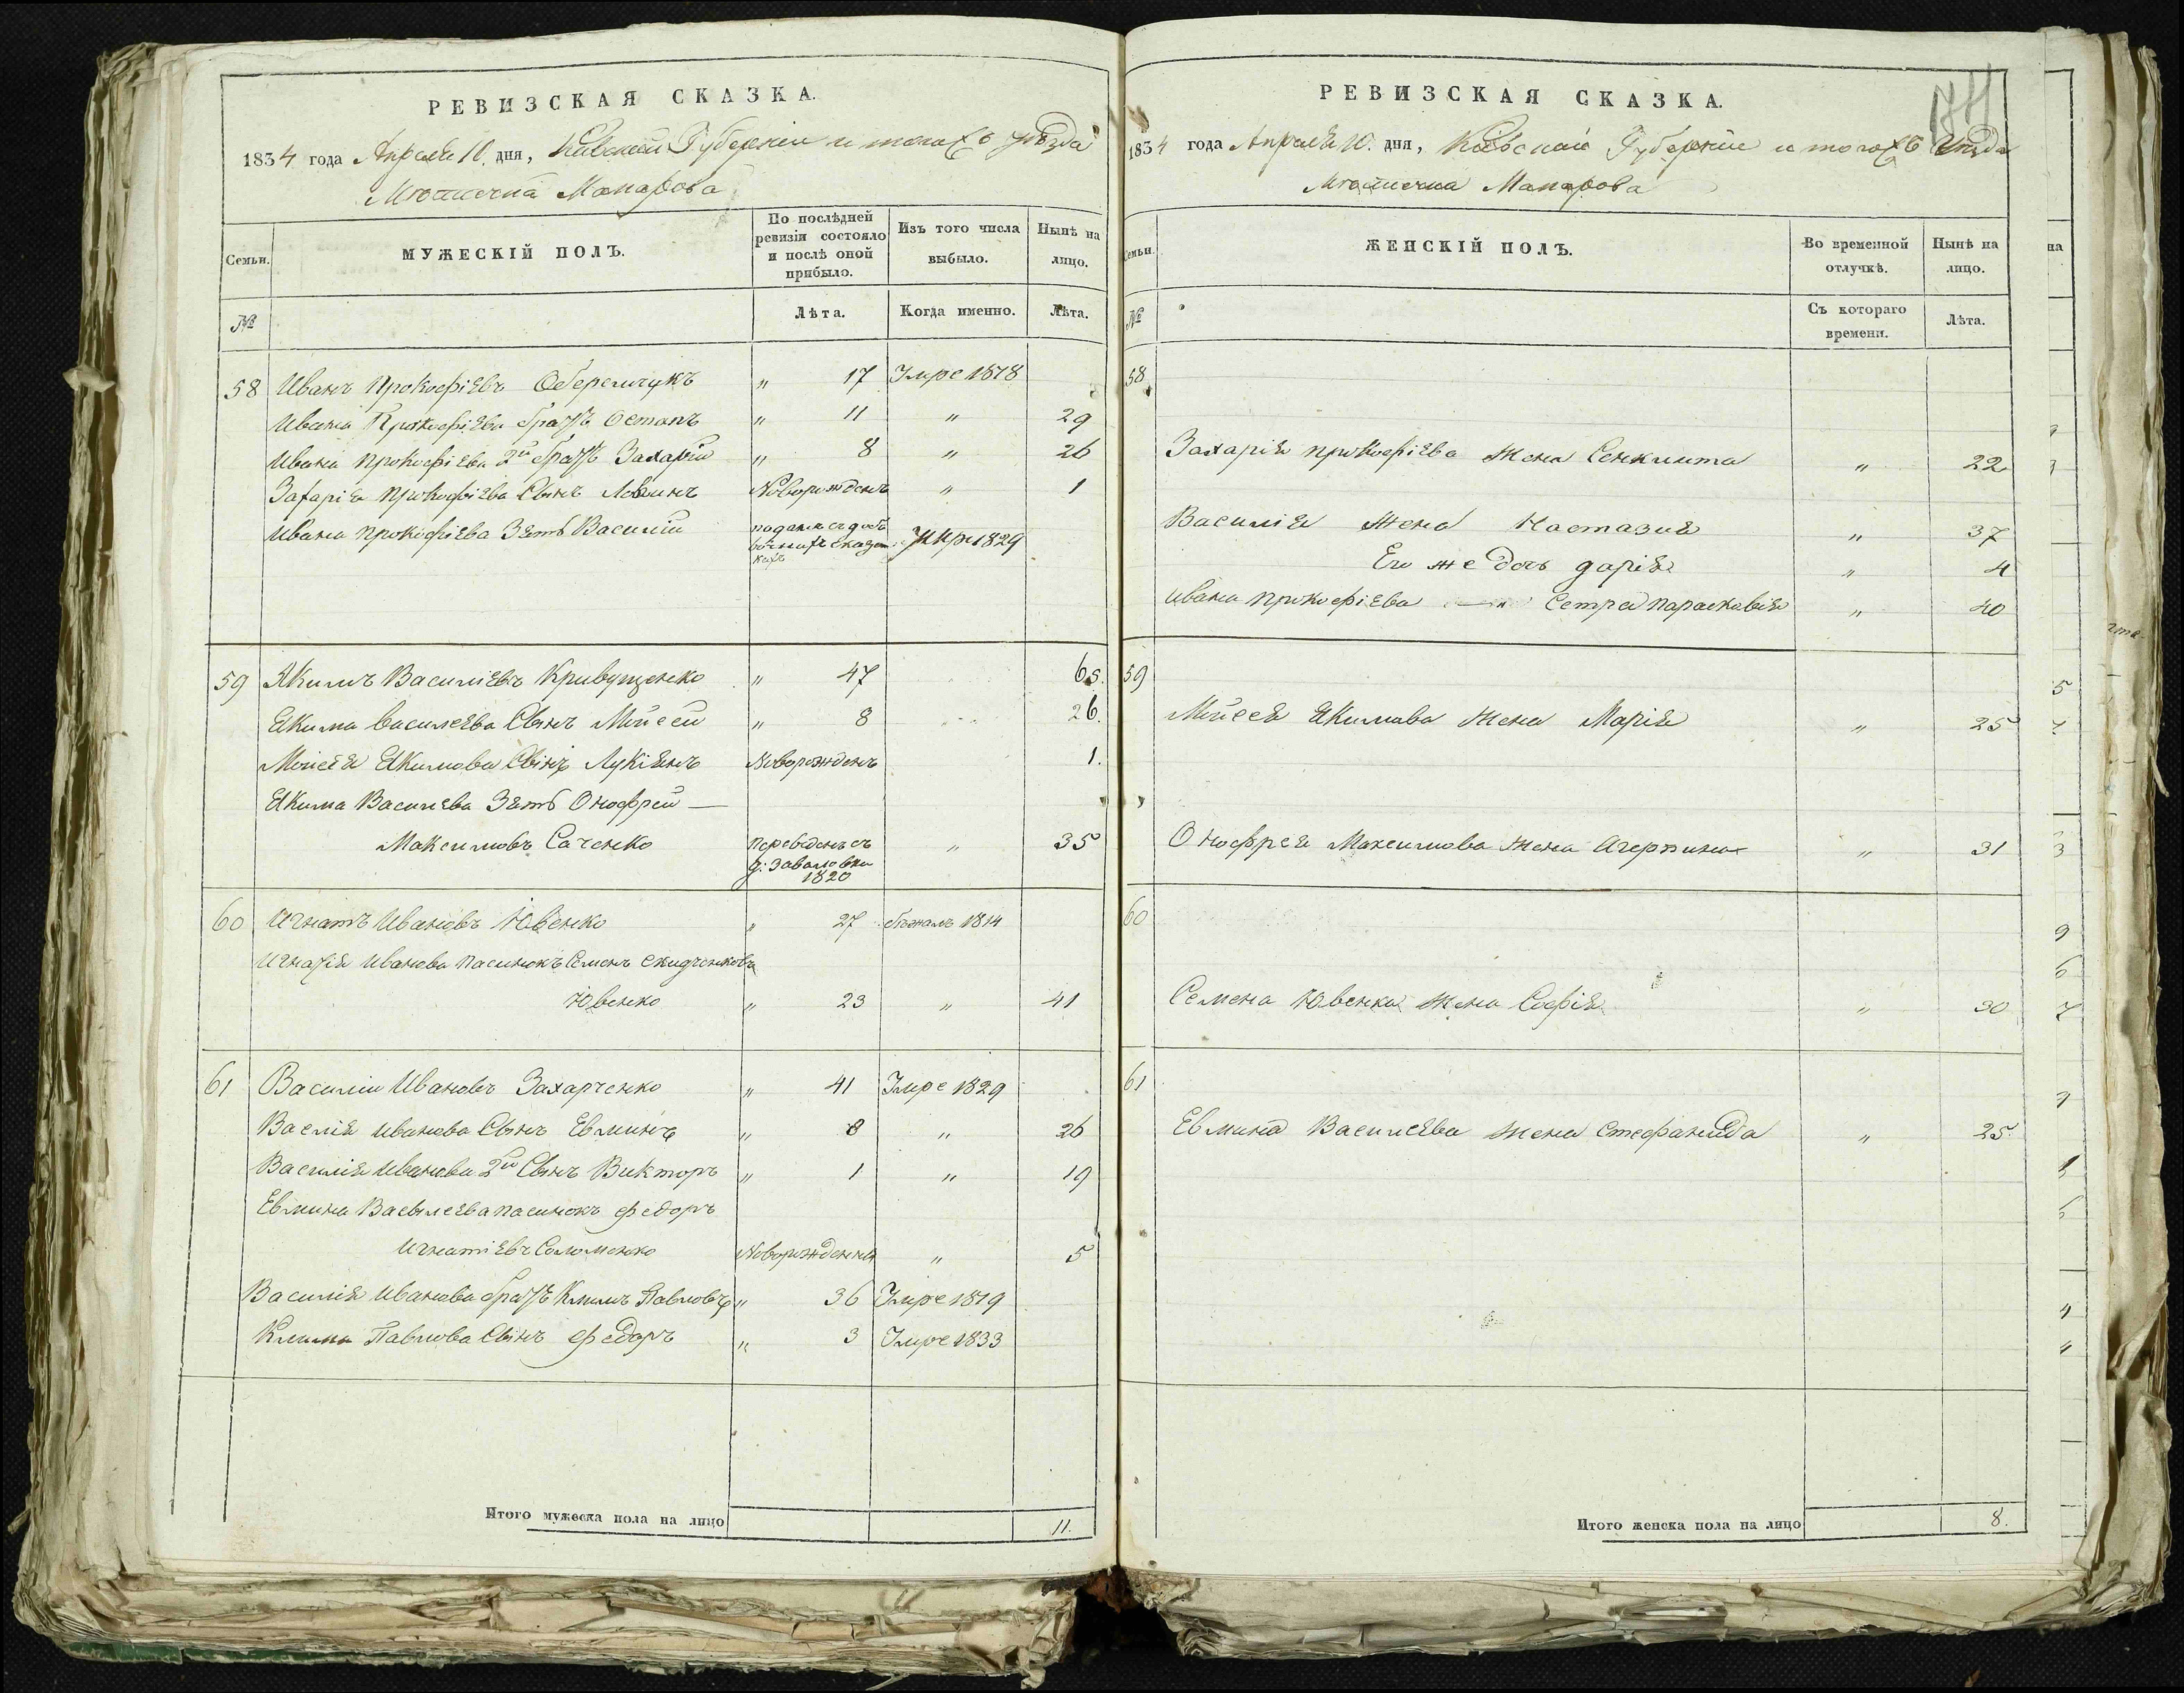 РЕВИЗСКАЯ СКАЗКА.
1834 года Апреля 10. дня, Киевской Губернии и тогожъ уѣзда
Мѣстечка Макарова
Семьи.
МУЖЕСКІЙ ПОЛЪ.
По послѣдней ревизіи состояло и послѣ оной прибыло.
Изъ того числа выбыло.
Нынѣ на лицо.
№
Лѣта.
Когда именно.
Лѣта.
58 Иванъ Прокофіевъ „ 17 Умре 1818
Ивана Прокофіева братъ Остапъ „ 11 „ 29
Ивана Прокофіева 2й братъ Захарій „ 8 „ 26
Захарія Прокофіева Сынъ Новорожденъ „ 1
Ивана Прокофіева Зять Василій Умре 1829
59 Якимъ Василіевъ Кривущенко „ 47 65.
Якима Василева Сынъ Мойсей „ 8 26.
Мойсея Якимова Сынъ Лукіянъ Новорожденъ 1.
Якима Василева Зять Онофрей —
Максимовъ Саченко переведенъ съ д: Заваловки 1820 „ 35
60 Игнатъ Ивановъ Ювенко „ 27 бѣжалъ 1814
Игнатія Иванова пасинокъ Семенъ
Ювенко „ 23 „ 41
61 Василій Ивановъ Захарченко „ 41 Умре 1829
Василія Иванова Сынъ Евминъ „ 8 „ 26
Василія Иванова 2й Сынъ Викторъ „ 1 „ 19
Евмина Василева пасинокъ Федоръ
Игнатіевъ Соломенко Новорожденны „ 5
Василія Иванова братъ Климъ Павловъ „ 36 Умре 1819
Клима Павлова Сынъ Федоръ „ 3 Умре 1833
Итого мужеска пола на лицо 11.
РЕВИЗСКАЯ СКАЗКА.
1834 года Апреля 10. дня, Киевской Губерніи и тогожъ уѣзда
Мѣстечка Макарова
Семьи.
ЖЕНСКІЙ ПОЛЪ.
Во временной отлучкѣ.
Нынѣ на лицо.
№
Съ котораго времени.
Лѣта.
58
Захарія Прокофіева жена „ 22
Василія жена Настазия „ 37
Его же дочь Дарія „ 4
Ивана Прокофіева — „ Сетра Парасковія „ 40
59
Мойсея Якимова жена Марія „ 25
Онофрея Максимова жена „ 31
60
Семена Ювенка жена Софія „ 30
61
Евмина Василева жена Стефанида „ 25.
Итого женска пола на лицо 8.